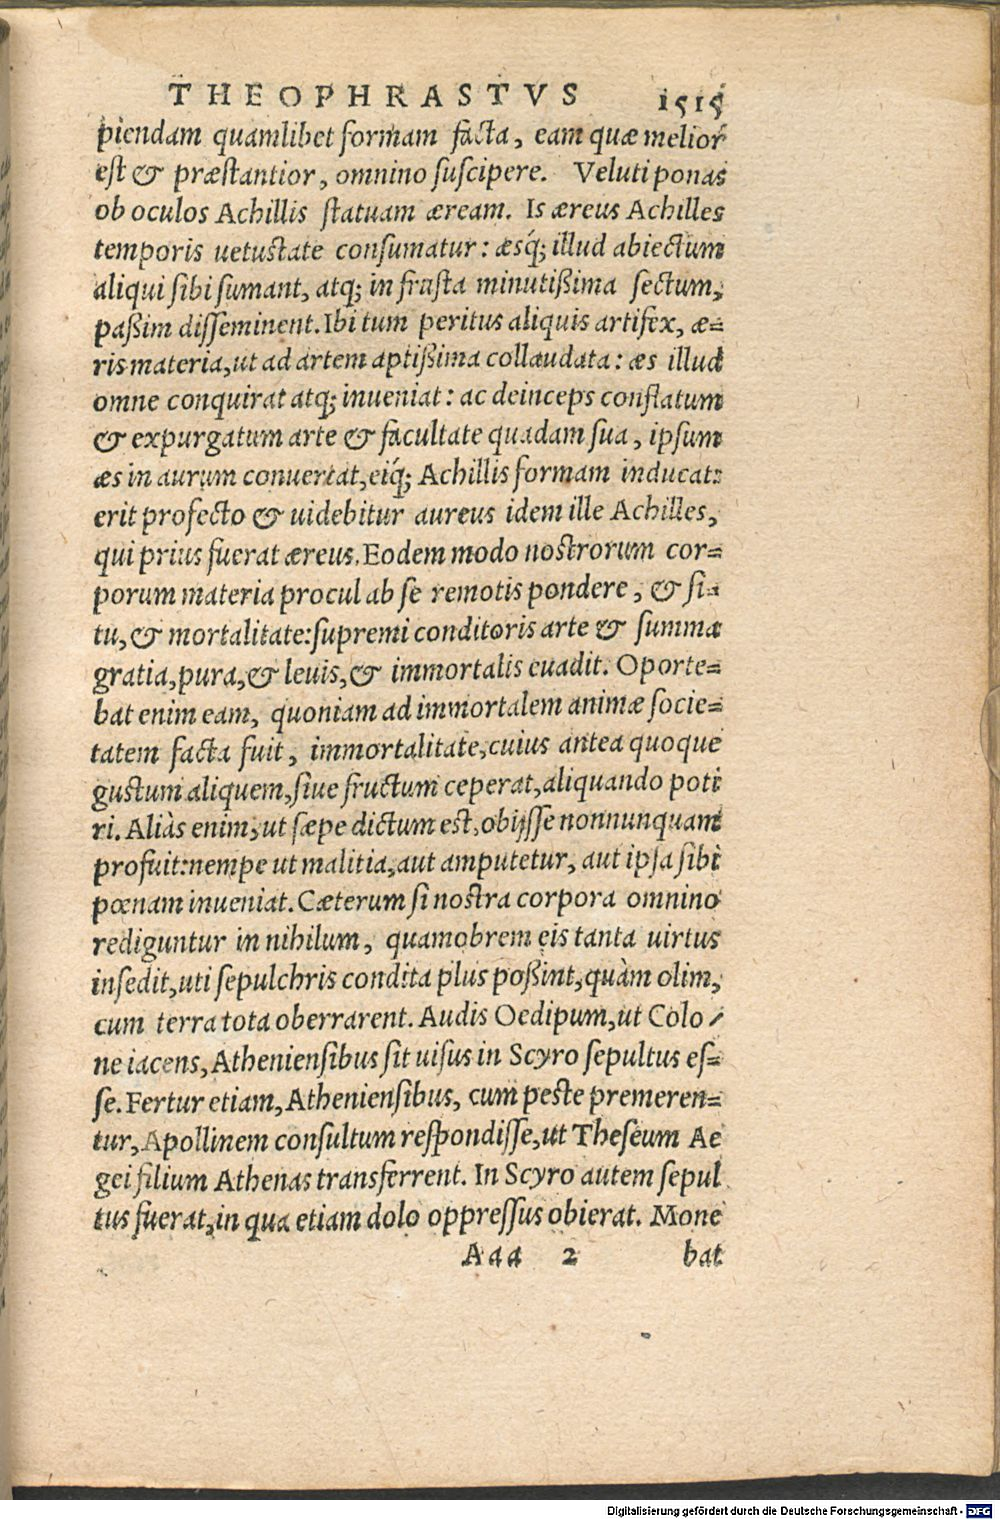 THEOPHRASTVS 1515
piendam quamlibet formam facta, eam quæ melior
est & præstantior, omnino suscipere. Veluti ponas
ob oculos Achillis statuam æream. Is æreus Achilles
temporis uetustate consumatur: æsq́; illud abiectum
aliqui sibi sumant, atq; in frusta minutißima sectum,
paßim disseminent. Ibi tum peritus aliquis artifex, æ=
ris materia, ut ad artem aptißima collaudata: æs illud
omne conquirat atq; inueniat: ac deinceps conflatum
& expurgatum arte & facultate quadam sua, ipsum
æs in aurum conuertat, eiq́; Achillis formam inducat:
erit profecto & uidebitur aureus idem ille Achilles,
qui prius fuerat æreus. Eodem modo nostrorum cor=
porum materia procul ab se remotis pondere, & si=
tu, & mortalitate: supremi conditoris arte & summa
gratia, pura, & leuis, & immortalis euadit. Oporte=
bat enim eam, quoniam ad immortalem animæ socie=
tatem facta fuit, immortalitate, cuius antea quoque
gustum aliquem, siue fructum ceperat, aliquando poti
ri. Aliàs enim, ut sæpe dictum est, obijsse nonnunquam
profuit: nempe ut malitia, aut amputetur, aut ipsa sibi
pœnam inueniat. Cæterum si nostra corpora omnino
rediguntur in nihilum, quamobrem eis tanta uirtus
insedit, uti sepulchris condita plus poßint, quàm olim,
cum terra tota oberrarent. Audis Oedipum, ut Colo/
ne iacens, Atheniensibus sit uisus in Scyro sepultus es=
se. Fertur etiam, Atheniensibus, cum peste premeren=
tur, Apollinem consultum respondisse, ut Theseum Ae
gei filium Athenas transferrent. In Scyro autem sepul
tus fuerat, in qua etiam dolo oppressus obierat. Mone
Aaa 2 bat
Digitalisierung gefördert durch die Deutsche Forschungsgemeinschaft - DFG